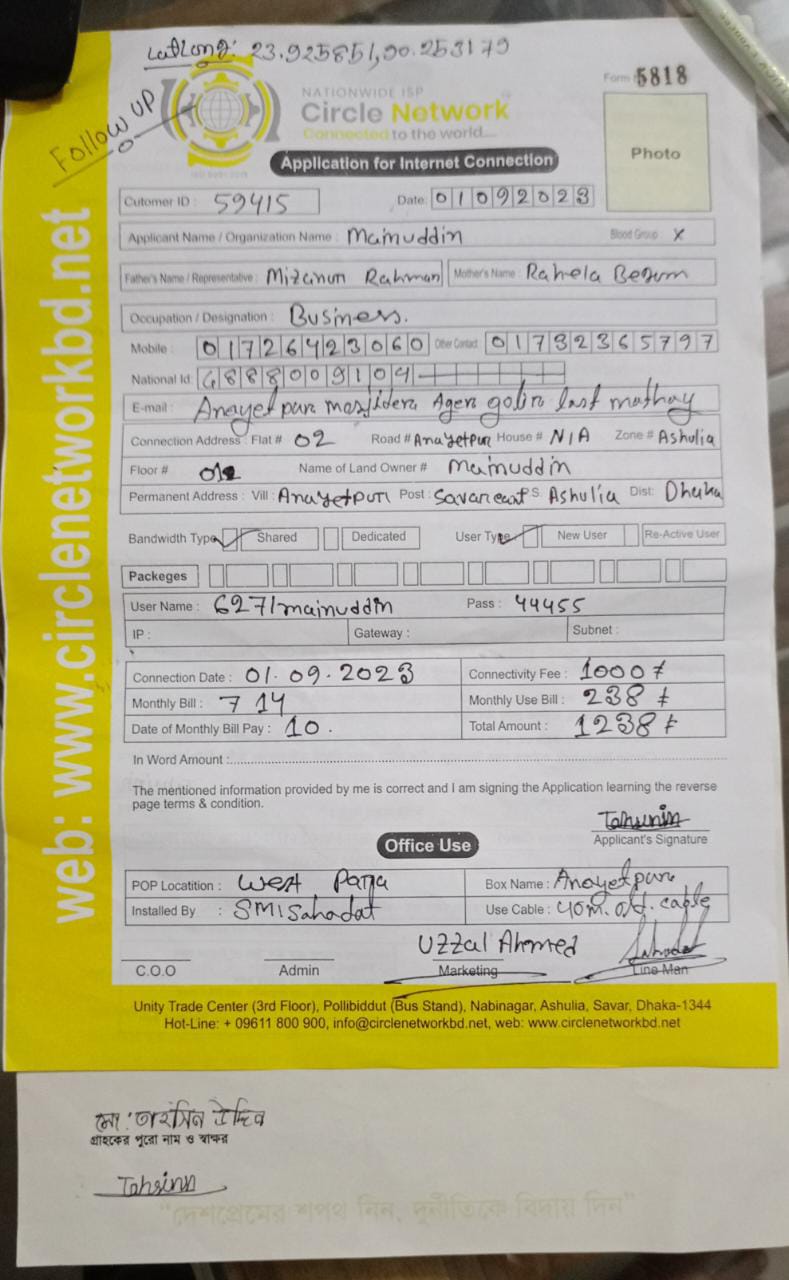 LatLong: 23.925851,90.253179
Follow UP
NATIONWIDE ISP
Circle Network
Connected to the world...
Form 5818
Photo
Application for Internet Connection
Cutomer ID : 59415 Date: 01092023
Applicant Name / Organization Name : Mainuddin Blood Group : X
Father's Name / Representative : Mizanur Rahman Mother's Name : Rahela Begum
Occupation / Designation : Business.
Mobile : 01726423060 Other Contact 01732365797
National Id: 6888009104
E-mail : Anayetpur masjidera Ager golir last mathay
Connection Address : Flat # 02 Road # Anayetpur House # N/A Zone # Ashulia
Floor # Name of Land Owner # Mainuddin
Permanent Address : Vill : Anayetpur Post : Savar cant S. Ashulia Dist: Dhaka
Bandwidth Type Shared Dedicated User Type New User Re-Active User
Packeges
User Name : 627/mainuddin Pass : 44455
IP : Gateway : Subnet :
Connection Date : 01.09.2023 Connectivity Fee : 1000 ৳
Monthly Bill : 714 Monthly Use Bill : 238 ৳
Date of Monthly Bill Pay : 10. Total Amount : 1238 ৳
In Word Amount :
The mentioned information provided by me is correct and I am signing the Application learning the reverse
page terms & condition.
Tahsinin
Applicant's Signature
Office Use
POP Locatition : West Para Box Name : Anayetpur
Installed By : SMISahadat Use Cable : 40m. old. cable
Uzzal Ahmed Sahadat
C.O.O Admin Marketing Line Man
Unity Trade Center (3rd Floor), Pollibiddut (Bus Stand), Nabinagar, Ashulia, Savar, Dhaka-1344
Hot-Line: + 09611 800 900, info@circlenetworkbd.net, web: www.circlenetworkbd.net
web: www.circlenetworkbd.net
মো: তাহসিন উদ্দিন
গ্রাহকের পুরো নাম ও স্বাক্ষর
Tahsinn
"দেশপ্রেমের শপথ নিন, দুর্নীতিকে বিদায় দিন"